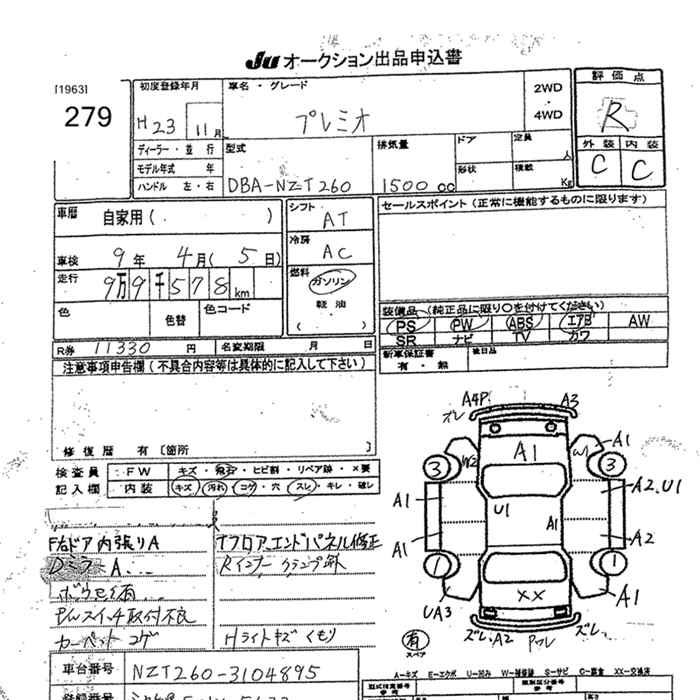 JU オークション出品申込書
[1963]
279
初度登録年月
H23 11月
車名・グレード
プレミオ
2WD
・
4WD
評価点
R
外装 内装
C C
ディーラー・並行
モデル年式 年
ハンドル 左・右
型式
DBA-NZT260
排気量
1500 cc
ドア
形状
定員
人
積載
Kg
車歴 自家用( )
車検 9年 4月( 5日)
走行 9万9千578km
色 色替 色コード
シフト
AT
冷房
AC
燃料
ガソリン
軽油
( )
セールスポイント (正常に機能するものに限ります)
装備品 (純正品に限り○を付けてください)
PS PW ABS エアB AW
SR ナビ TV カワ
新車保証書
有・無
後日品
R券 11330 円 名変期限 月 日
注意事項申告欄 (不具合内容等は具体的に記入して下さい)
修復歴 有 [箇所 ]
検査員 FW キズ・飛石・ヒビ割・リペア跡・×要
記入欄 内装 キズ・汚れ・コゲ・穴・スレ・キレ・破レ
F右ドア内張りA
Dミラー A...
P/Wスイッチ取付不良
カーペット コゲ
Tフロア.エンドパネル修正
Rインナー クランプ跡
Hライトキズ くもり
A4P. A3
オレ
A1
3 W2 W1 3
A1
A1 U1 A1 A2.U1
A1 A2
1 1
XX
UA3 A1
有
スペア
ズレ.A2 Pマフレ ズレ.
A-キズ E-エクボ U-凹み W-補修跡 S-サビ C-腐食 XX-交換済
車台番号 NZT260-3104895
登録番号